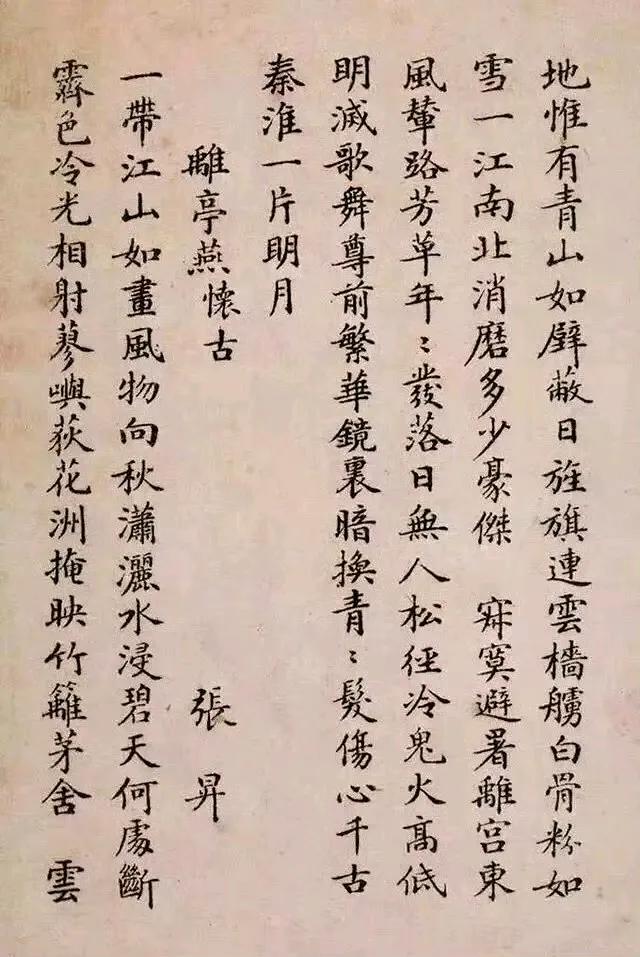 地惟有青山如壁蔽日旌旗連雲檣艣白骨粉如
雪一江南北消磨多少豪傑　寂寞避署離宮東
風輦路芳草年〻發落日無人松徑冷鬼火高低
明滅歌舞尊前繁華鏡裏暗換青〻髮傷心千古
秦淮一片明月
離亭燕懷古　張昇
一帶江山如畫風物向秋瀟灑水浸碧天何處斷
霽色冷光相射蓼嶼荻花洲掩映竹籬茅舍　雲